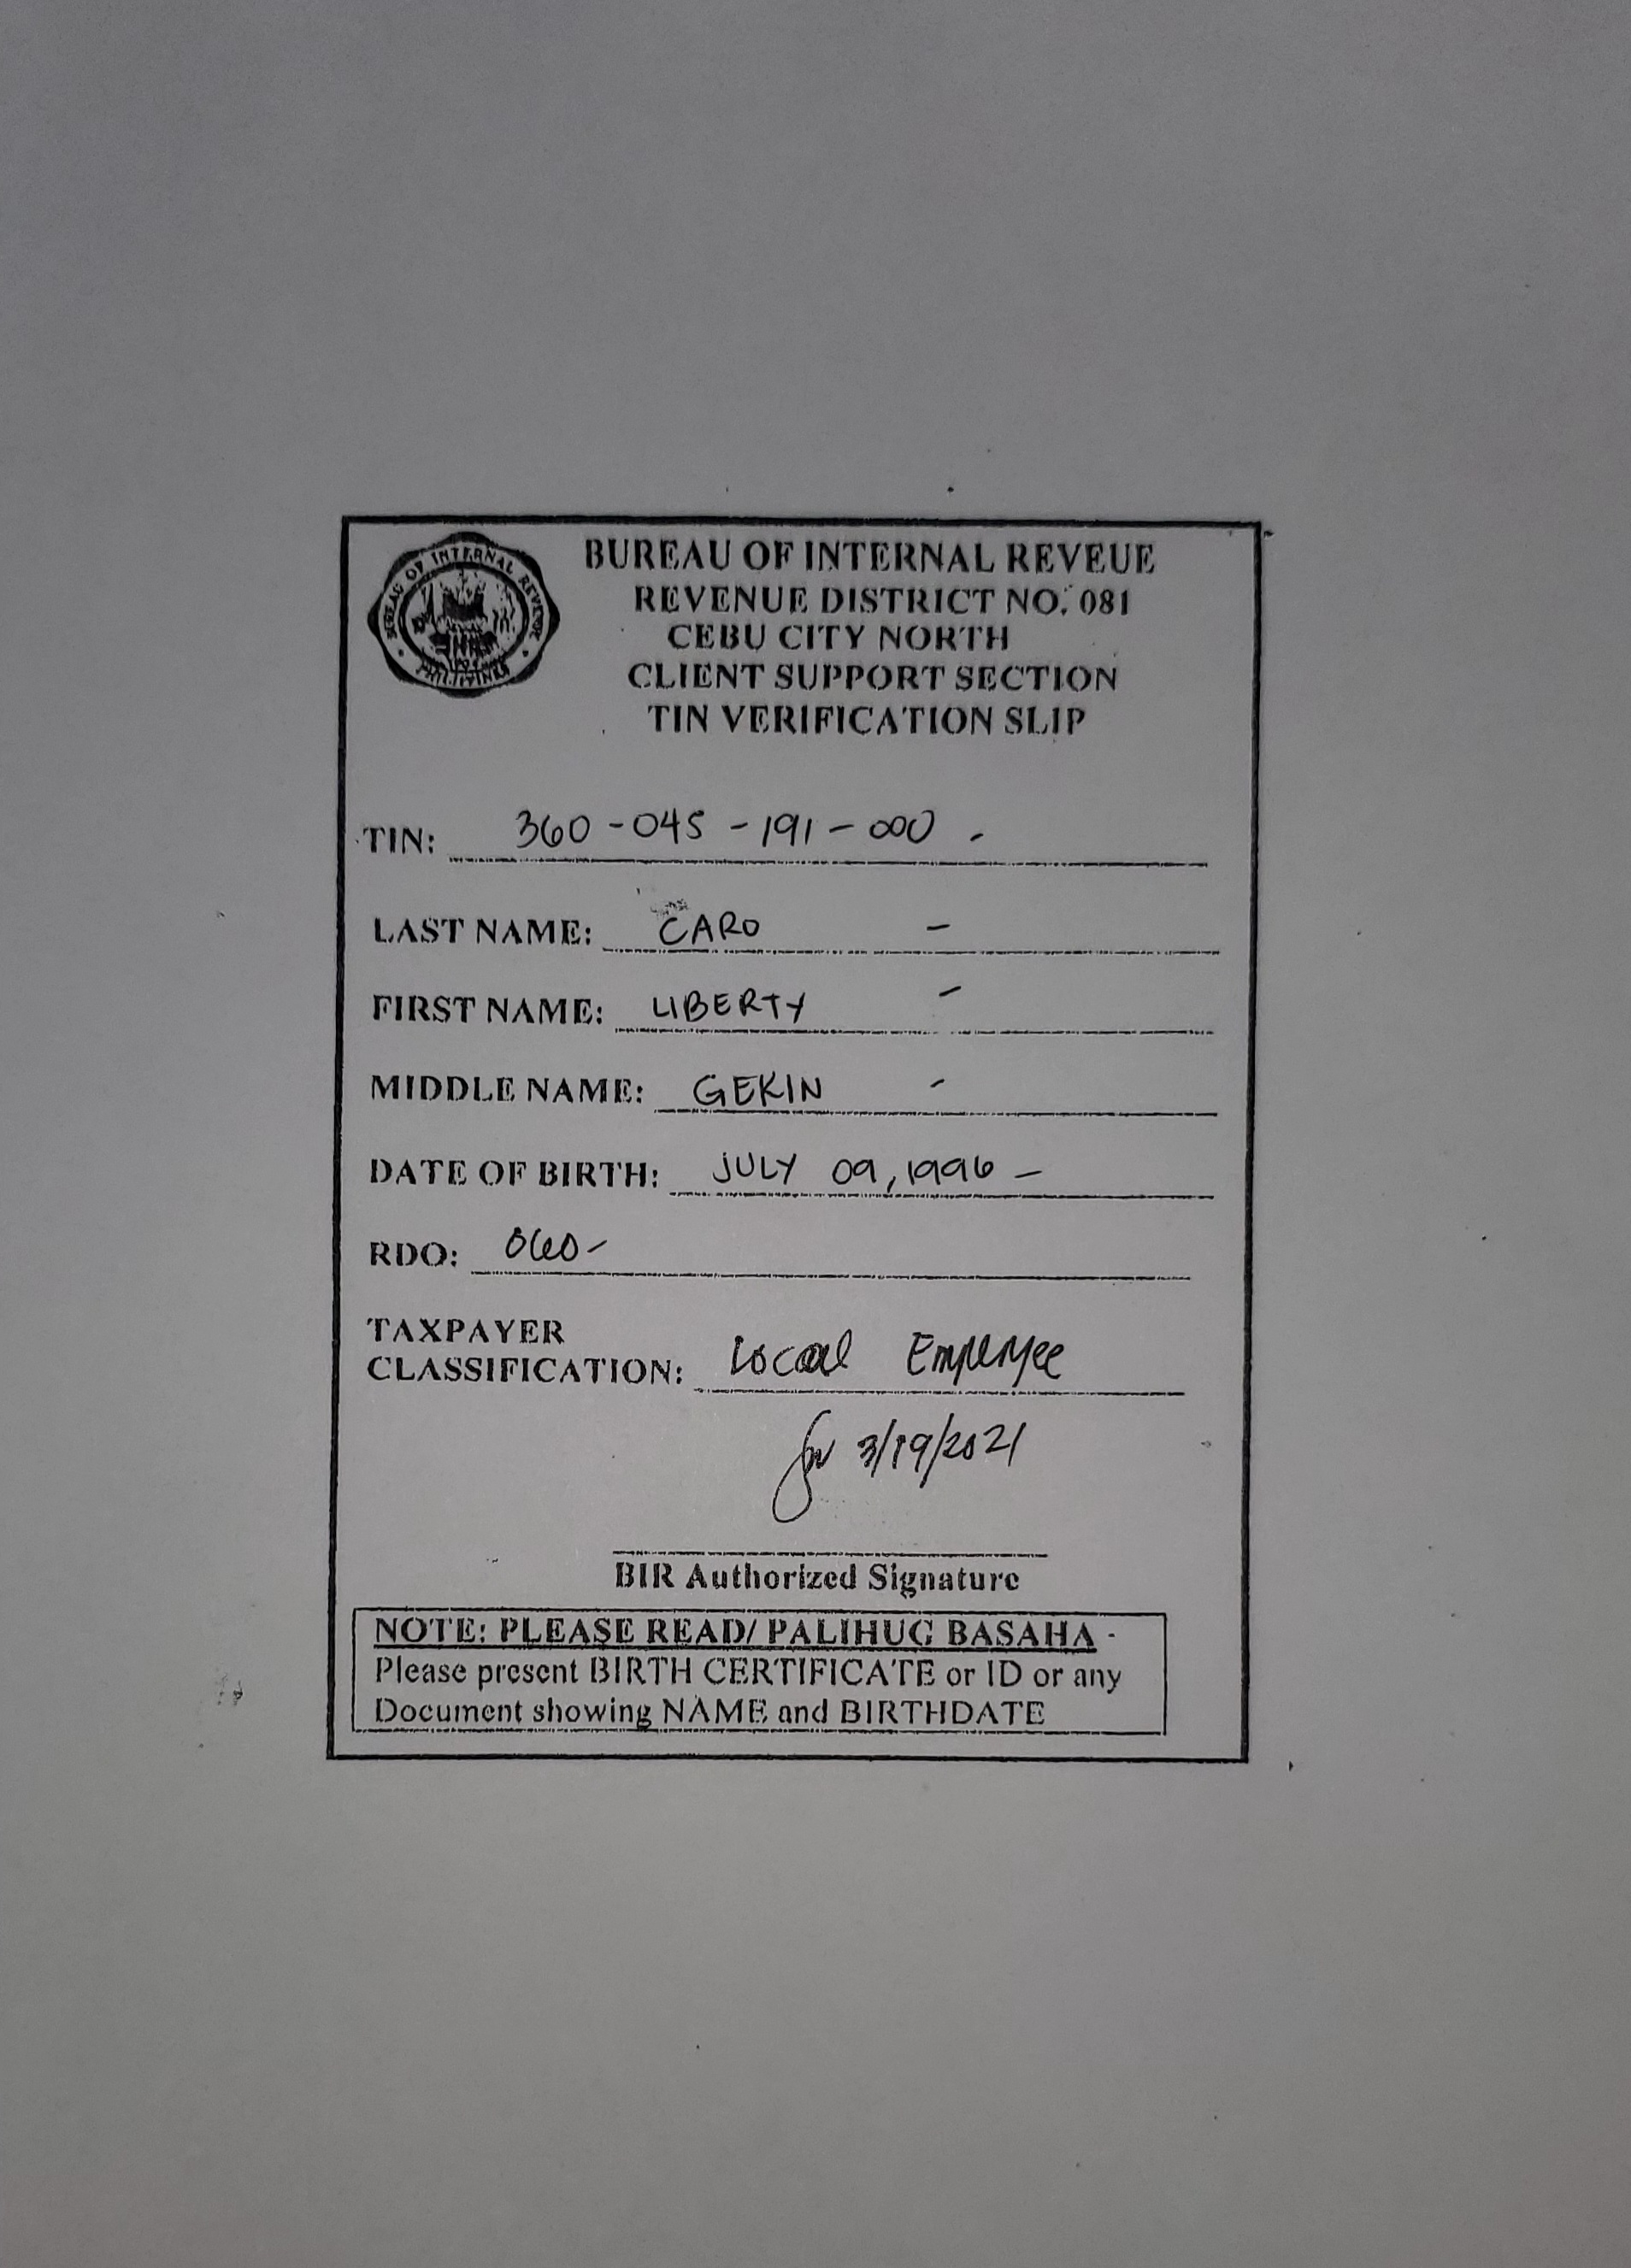 BUREAU OF INTERNAL REVENUE
PHILIPPINES
BUREAU OF INTERNAL REVEUE
REVENUE DISTRICT NO. 081
CEBU CITY NORTH
CLIENT SUPPORT SECTION
TIN VERIFICATION SLIP
TIN: 360-045-191-000 -
LAST NAME: CARO -
FIRST NAME: LIBERTY -
MIDDLE NAME: GEKIN -
DATE OF BIRTH: JULY 09, 1996 -
RDO: 060 -
TAXPAYER
CLASSIFICATION: Local Employee
3/19/2021
BIR Authorized Signature
NOTE: PLEASE READ/ PALIHUG BASAHA -
Please present BIRTH CERTIFICATE or ID or any
Document showing NAME and BIRTHDATE